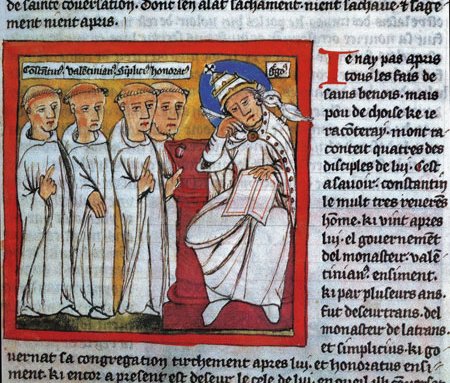 de sainte conversation. Dont sen alat sachament. nient sachaue & sage
ment nient apris.
Constantin' valentinian' Simplici' honorat'
Ie nay pas apris
tous les fais de
sains benois. mais
pou de choise ke ie
racōteray. mont ra
conteit quatres des
disciples de luy. Cest
a sauoir. constantin
le mult tres reueren
hōme. ki vint apres
luy. el gouernemēt
del monasteir. valē
tinian' ensiment.
ki par pluseurs ans.
fut deseurtrans. del
monasteir de latrans.
et simplicius. ki go
uernat sa congregation tirchement apres luy. et honoratus ensi
ment. ki encor a present est deseur le cele de luy. en